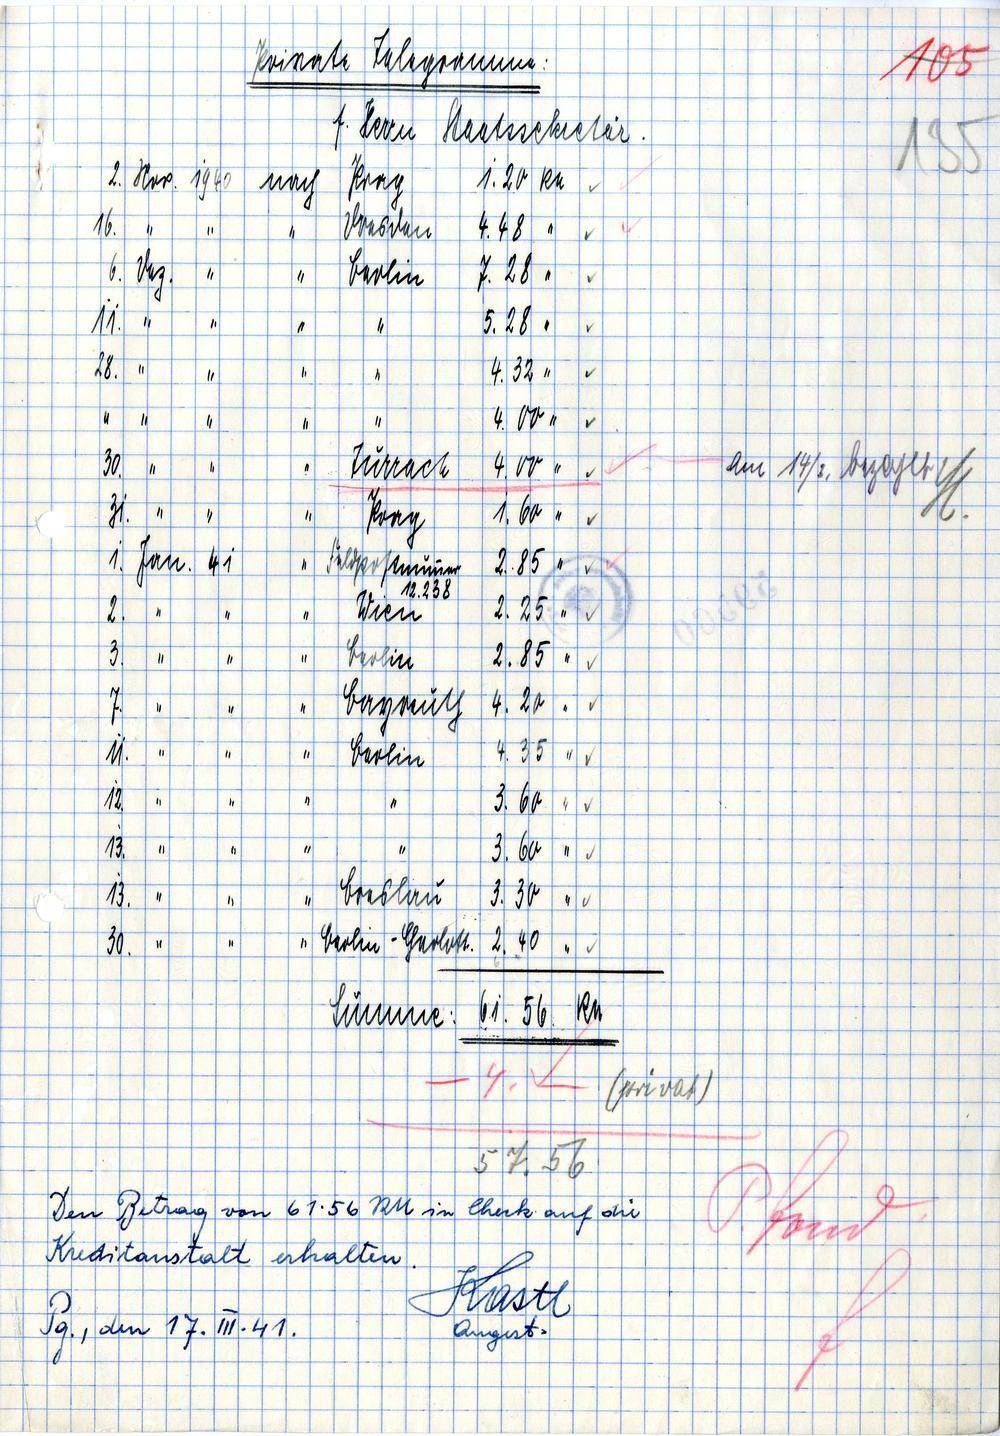 105
135
Private Telegramme:
f. Herrn Staatssekretär.
2. Nov. 1940 nach Prag 1.20 RM
16. " " " Dresden 4.48 "
6. Dez. " " Berlin 7.28 "
11. " " " " 5.28 "
28. " " " " 4.32 "
" " " " " 4.00 "
30. " " " Turrach 4.00 " am 14/2. bezahlt
31. " " " Prag 1.60 "
1. Jan. 41 " Feldpostnummer 2.85 "
12.238
2. " " " Wien 2.25 "
3. " " " Berlin 2.85 "
7. " " " Bayreuth 4.20 "
11. " " " Berlin 4.35 "
12. " " " " 3.60 "
13. " " " " 3.60 "
13. " " " Breslau 3.30 "
30. " " " Berlin-Charlott. 2.40 "
Summe: 61.56 RM
- 4. - (privat)
57.56
P. Fond
Den Betrag von 61.56 RM in Check auf die
Kreditanstalt erhalten.
Kastl
Pg., den 17. III. 41. Angest.